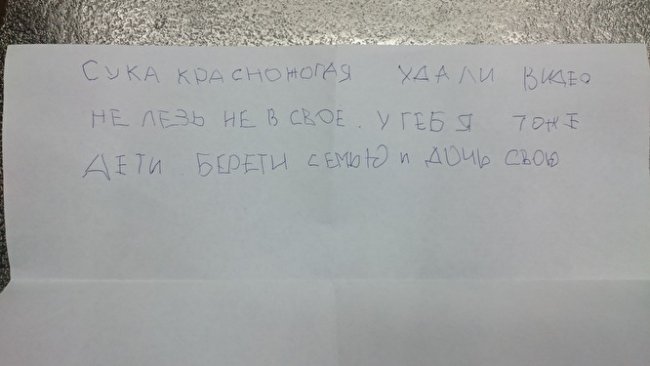 СУКА КРАСНОЖОПАЯ УДАЛИ ВИДЕО
НЕ ЛЕЗЬ НЕ В СВОЕ. У ТЕБЯ ТОЖЕ
ДЕТИ. БЕРЕГИ СЕМЬЮ И ДОЧЬ СВОЮ